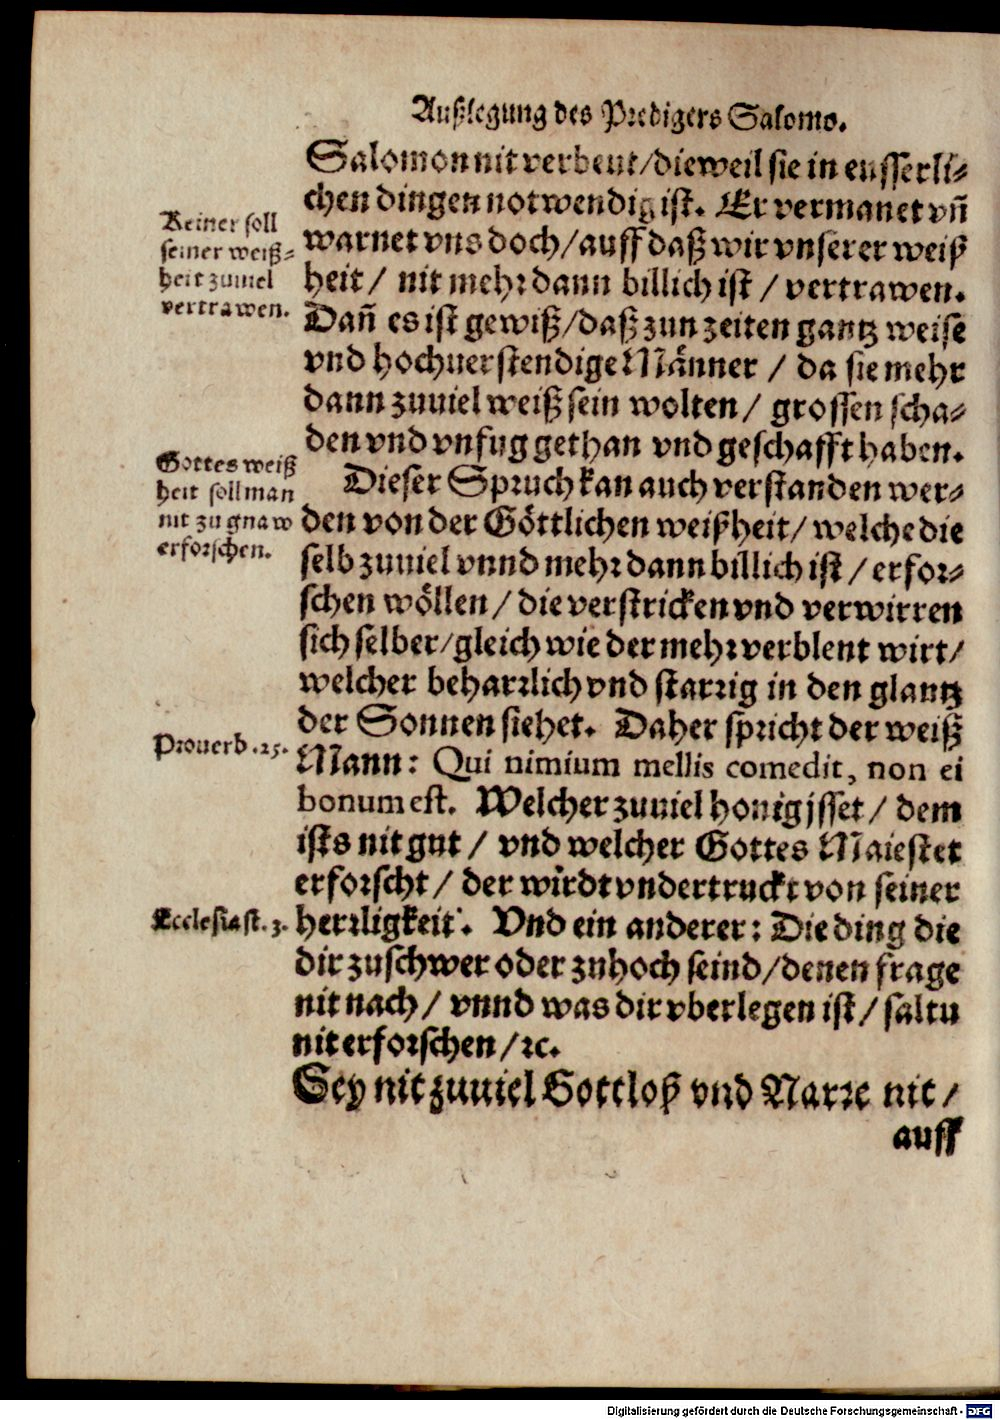 Außlegung des Predigers Salomo.
Salomon nit verbeut/dieweil sie in eusserli-
chen dingen notwendig ist. Er vermanet vñ
warnet vns doch/auff daß wir vnserer weiß
heit/ nit mehr dann billich ist / vertrawen.
Dañ es ist gewiß/daß zun zeiten gantz weise
vnd hochuerstendige Männer / da sie mehr
dann zuuiel weiß sein wolten/ grossen scha-
den vnd vnfug gethan vnd geschafft haben.
Keiner soll
seiner weiß-
heit zuuiel
vertrawen.
Dieser Spruch kan auch verstanden wer-
den von der Göttlichen weißheit/ welche die
selb zuuiel vnnd mehr dann billich ist / erfor-
schen wöllen / die verstricken vnd verwirren
sich selber/gleich wie der mehr verblent wirt/
welcher beharrlich vnd starrig in den glantz
der Sonnen siehet. Daher spricht der weiß
Mann: Qui nimium mellis comedit, non ei
bonum est. Welcher zuuiel honig jsset / dem
ists nit gut / vnd welcher Gottes Maiestet
erforscht / der wirdt vndertruckt von seiner
herrligkeit. Vnd ein anderer: Die ding die
dir zuschwer oder zuhoch seind/denen frage
nit nach / vnnd was dir vberlegen ist / saltu
nit erforschen /rc.
Gottes weiß
heit soll man
nit zu gnaw
erforschen.
Prouerb .25.
Ecclesiast. 3.
Sey nit zuuiel Gottloß vnd Narre nit /
auff
Digitalisierung gefördert durch die Deutsche Forschungsgemeinschaft - DFG